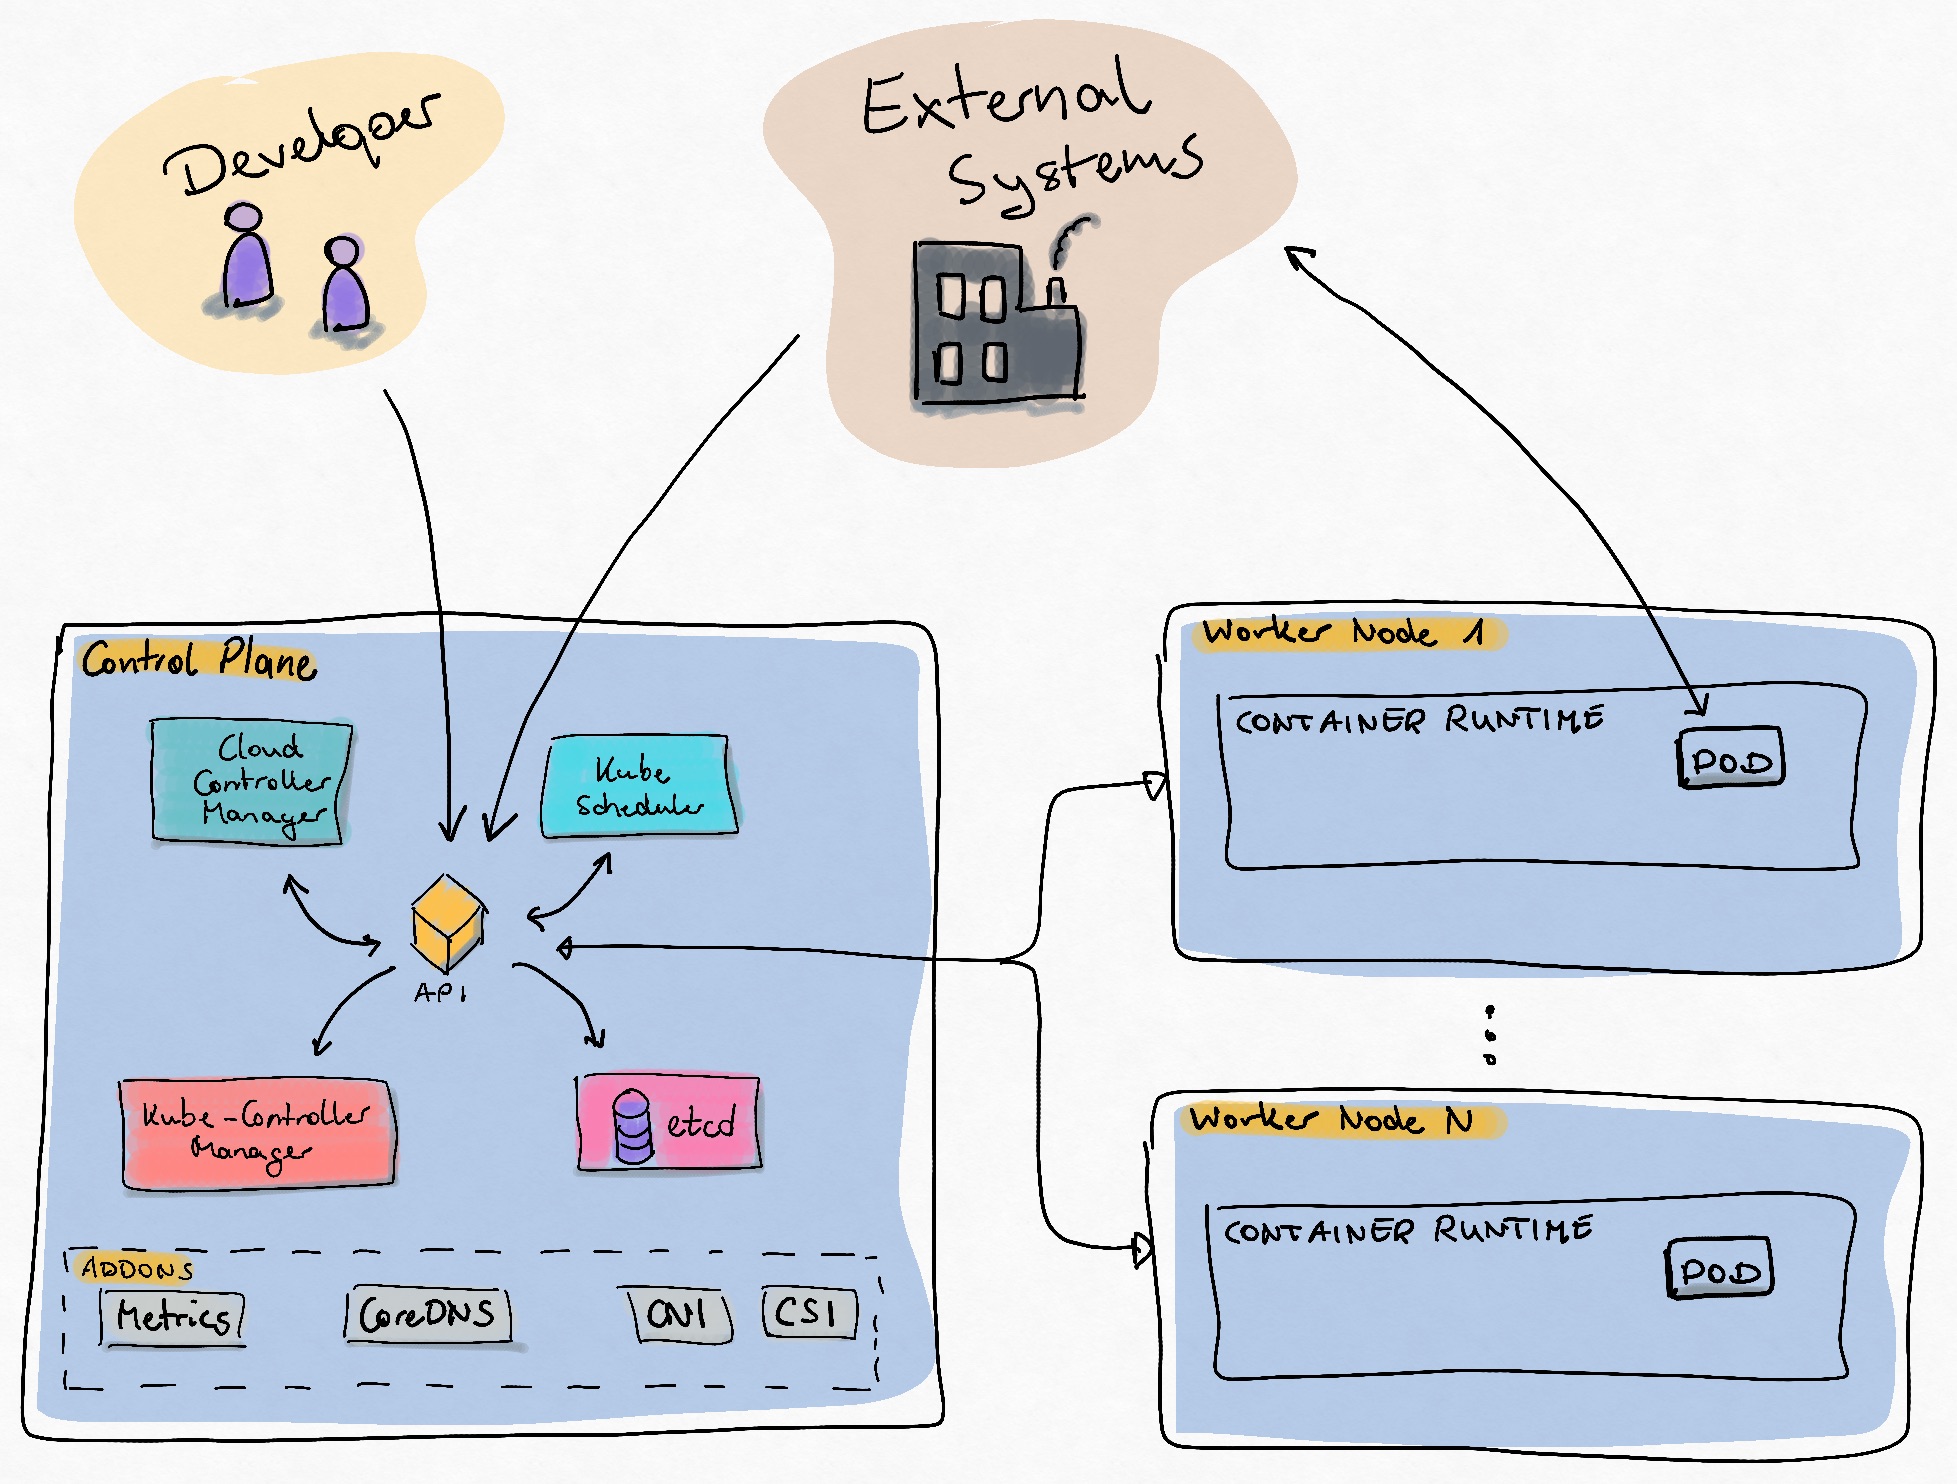 Developer
External
Systems
Control Plane
Cloud
Controller
Manager
Kube
Scheduler
API
Kube-Controller
Manager
etcd
ADDONS
Metrics
CoreDNS
CNI
CSI
Worker Node 1
CONTAINER RUNTIME
POD
Worker Node N
CONTAINER RUNTIME
POD